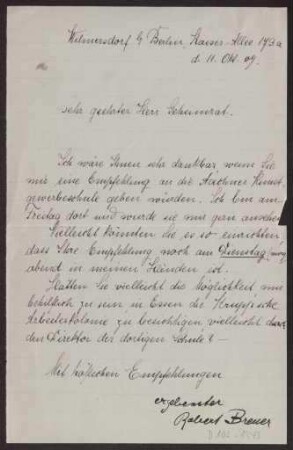 Wilmersdorf b/ Berlin, Kaiser-Allee 173a
d. 11. Okt. 09.
Sehr geehrter Herr Geheimrat.
Ich wäre Ihnen sehr dankbar wenn Sie
mir eine Empfehlung an die Aachner Kunst-
gewerbeschule geben würden. Ich bin am
Freitag dort und würde sie mir gern ansehen
Vielleicht könnten Sie es so einrichten,
dass Ihre Empfehlung noch am Dienstag
abend in meinen Händen ist.
Hätten Sie vielleicht die Möglichkeit mir
behilflich zu sein in Essen die Kruppsche
Arbeiterkolonie zu besichtigen, vielleicht durch
den Direktor der dortigen Schule? —
Mit höflichen Empfehlungen
ergebenster
Robert Breuer